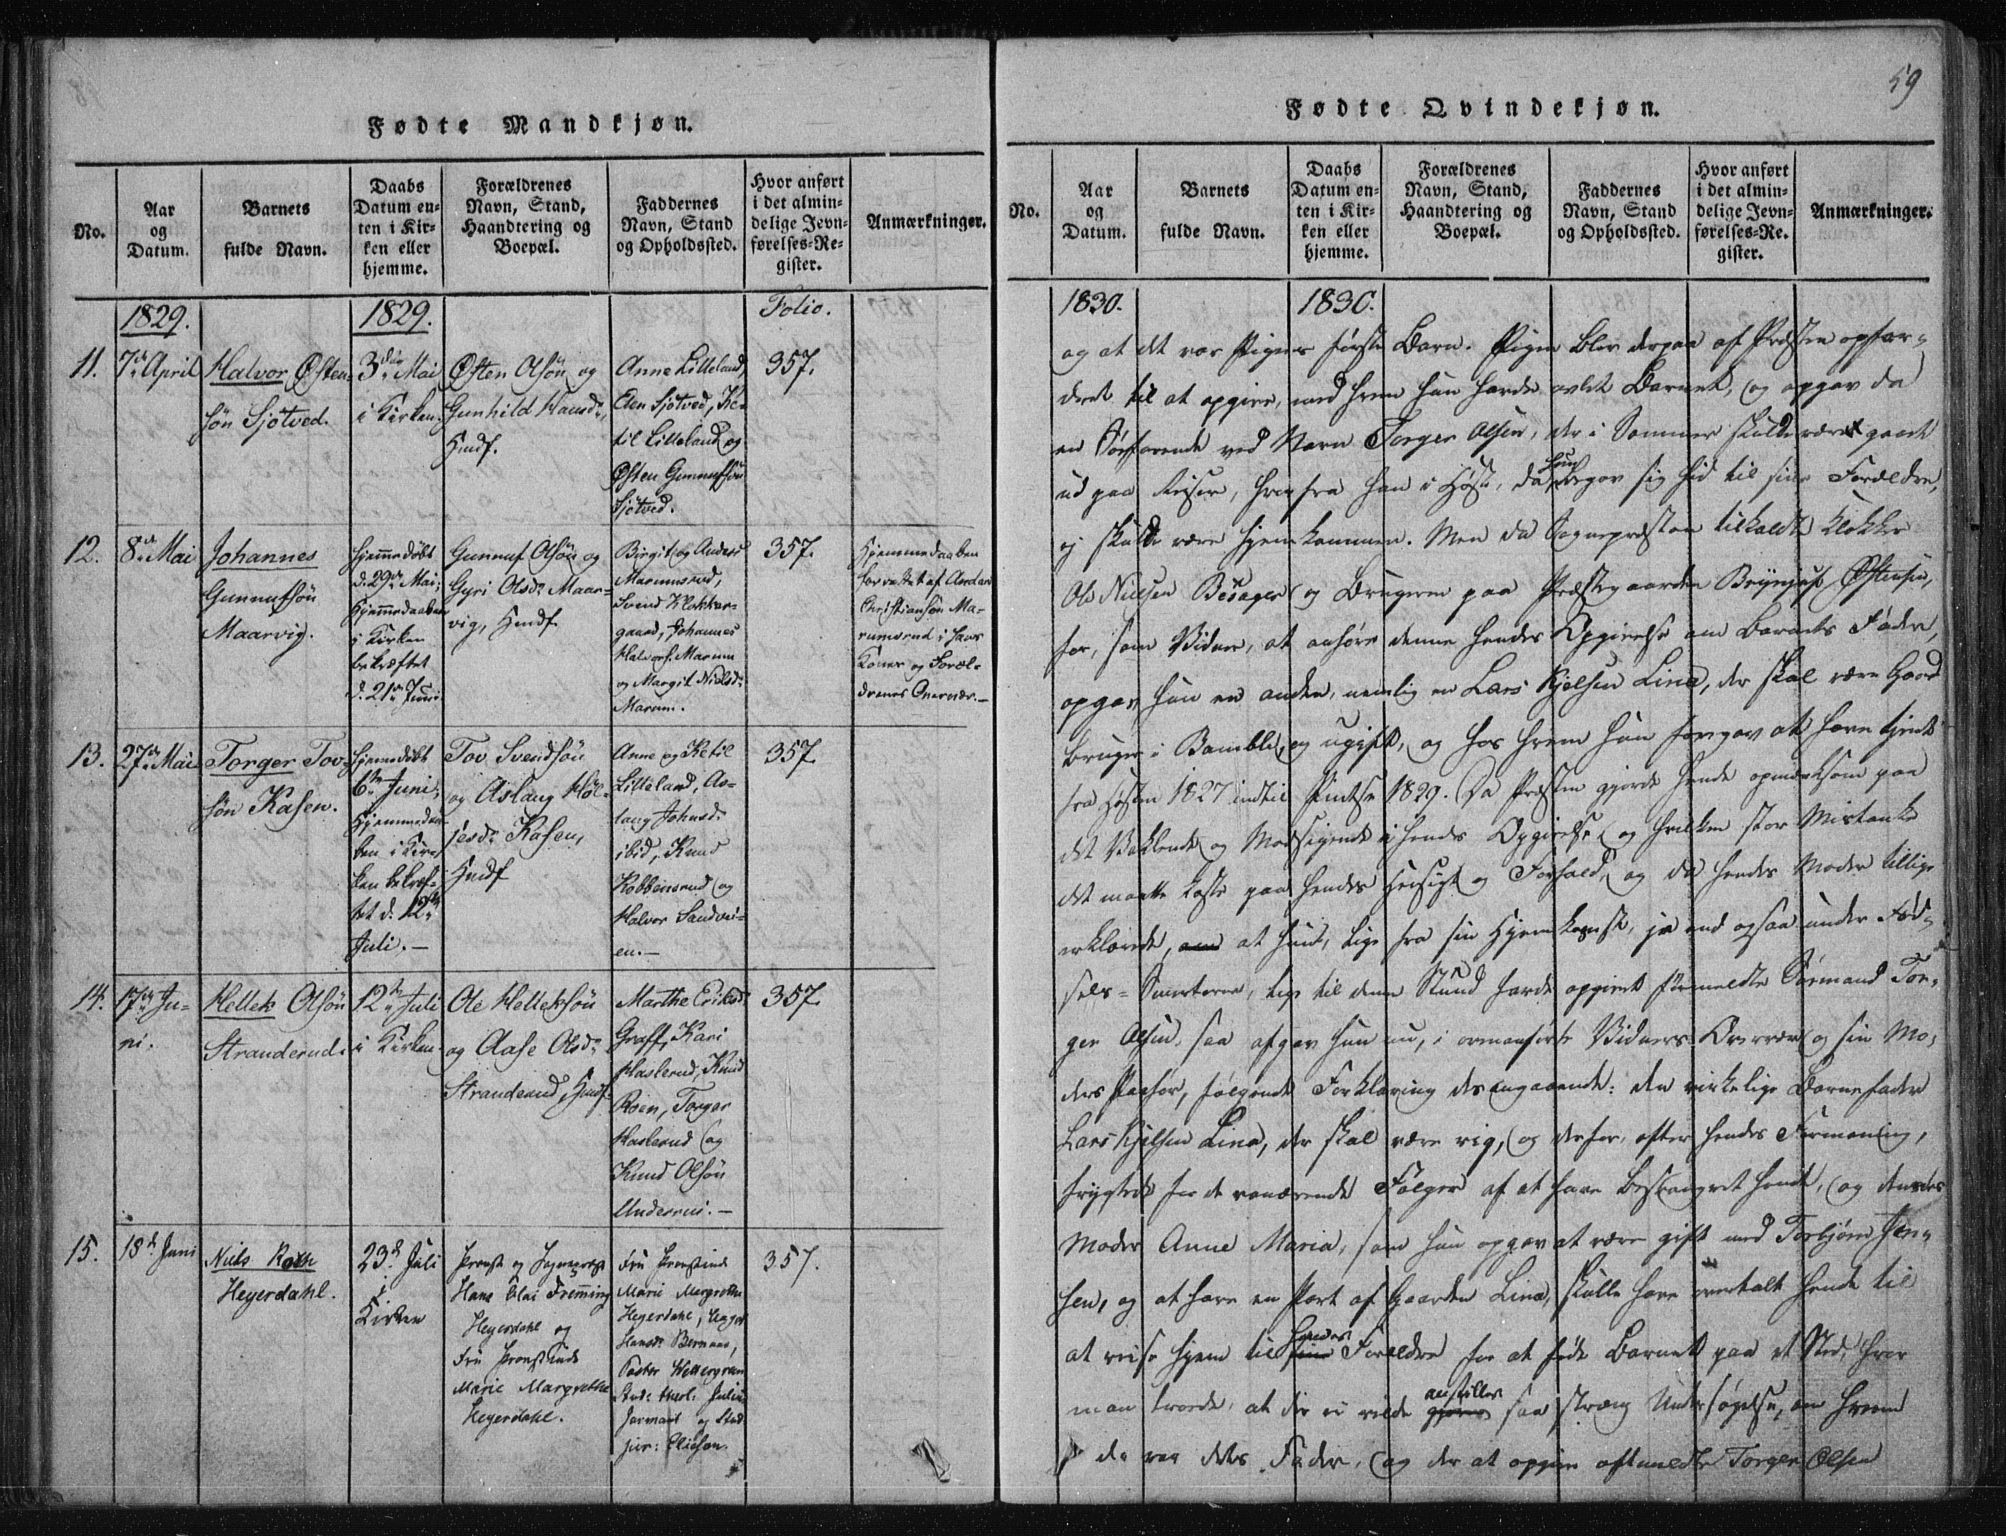 59
Fødte Mandkjøn.
No.
Aar
og
Datum.
Barnets
fulde Navn.
Daabs
Datum en-
ten i Kir-
ken eller
hjemme.
Forældrenes
Navn, Stand,
Haandtering og
Boepæl.
Faddernes
Navn, Stand
og Opholdssted.
Hvor anført
i det almin-
delige Jevn-
førelses-Re-
gister.
Anmærkninger.
1829.
1829.
Folio.
11.
7de April
Halvor Østen-
søn Sjøtved.
3die Mai
i Kirken.
Østen Olsøn og
Gunhild Hansdr,
Hmdf.
Anne Lilleland,
Elen Sjøtved, Ke-
til Lilleland og
Østen Gunnufsøn
Sjøtved.
357.
12.
8de Mai
Johannes
Gunnufsøn
Maarvig.
Hjemmedøbt
d. 29de Mai;
Hjemmedaaben
i Kirken
bekræftet
d. 21de Juni.
Gunnuf Olsøn og
Gyri Olsdr Maar-
vig, Hmdf.
Birgit og Anders
Marumsrud,
Svend Klokker-
gaard, Johannes
Halvors. Marum
og Margit Nielsdr
Marum.
357.
Hjemmedaaben
forrettet af Anders
Christiansøn Ma-
rumsrud i hans
Kones og Foræl-
drenes Overvær.—
13.
27de Mai
Torger Tov-
søn Kasen.
Hjemmedøbt
6te Juni;
Hjemmedaa-
ben i Kir-
ken bekræf-
tet d. 12te
Juli.—
Tov Svendsøn
og Aslaug Høl-
jesdr Kasen,
Hmdf
Anne og Ketil
Lilleland, As-
laug Johnsdr
ibid, Knud
Kobbensrud og
Halvor Sandvi-
en.—
357.
14.
17de Ju-
ni.
Hellek Olsøn
Stranderud.
12te Juli
i Kirken.
Ole Helleksøn
og Aase Olsdr
Stranderud, Hmdf.
Marthe Eriksdr
Graff, Kari
Haslerud, Knud
Roen, Torger
Haslerud og
Knud Olsøn
357.
15.
18de Juni
Niels Rosth
Heyerdahl.
23de Juli
i
Kirken
Provst og Sognepræst
Hans Clai Fremming
Heyerdahl og
Fru Provstinde
Marie Margrethe
Heyerdahl.
Fru Provstinde
Marie Margrethe
Heyerdahl,
357.
Fødte Qvindekjøn.
No.
Aar
og
Datum.
Barnets
fulde Navn.
Daabs
Datum en-
ten i Kir-
ken eller
hjemme.
Forældrenes
Navn, Stand,
Haandtering og
Boepæl.
Faddernes
Navn, Stand
og Opholdssted.
Hvor anført
i det almin-
delige Jevn-
førelses-Re-
gister.
Anmærkninger.
1830.
1830.
og at det var Pigens første Barn. Pigen blev derpaa af Præsten opfor-
dret til at opgive, med hvem hun havde avlet Barnet, og opgav da
en Søefarende ved Navn Torger Olsen, der i Sommer skulde være gaaet
ud paa Reiser, hvorfra han i Høst, da hun begav sig hid til sine Forældre,
ej skulde være hjemkommen. Men da Sognepræsten tilkaldte Klokker
Ole Nielsen Besager og Brugeren paa Præstegaarden Brynjulf Østensen,
for, som Vidner, at anhøre denne hendes Opgivelse om Barnets Fader,
opgav hun en anden, nemlig en Lars Kjelsen Lina, der skal være Gaard-
bruger i Bamble og ugift, og hos hvem hun foregav at have tjent
fra Høsten 1827 indtil Pintse 1829. Da Præsten gjorde hende opmærksom paa
det Vaklende og Modsigende i hendes Opgivelse og hvilken stor Mistanke
det maatte kaste paa hendes Hensigt og Forhold, og da hendes Moder tillige
erklærede, at hun, lige fra sin Hjemkomst, ja end ogsaa under Fød-
sels-Smerterne, lige til denne Stund havde opgivet førmeldte Sømand Tor-
ger Olsen, saa afgav hun nu, i ovenanførte Vidners Overvær og sin Mo-
ders Paahør, følgende Forklaring desangaaende: den virkelige Barnefader
Lars Kjelsen Lina, der skal være rig, og derfor, efter hendes Formening,
frygtede for de vanærende Følger af at have besvangret hende, og dennes
Moder Anne Maria, som hun opgav at være gift med Torbjørn Jen-
sen, og at have en Part af Gaarden Lina, skulle have overtalt hende til
at reise hjem til hendes Forældre for at føde Barnet paa et Sted, hvor
man troede, at der ei vilde anstilles saa streng Undersøgelse, om hvem
der var dets Fader, og der at opgive oftmeldte Torger Olsen